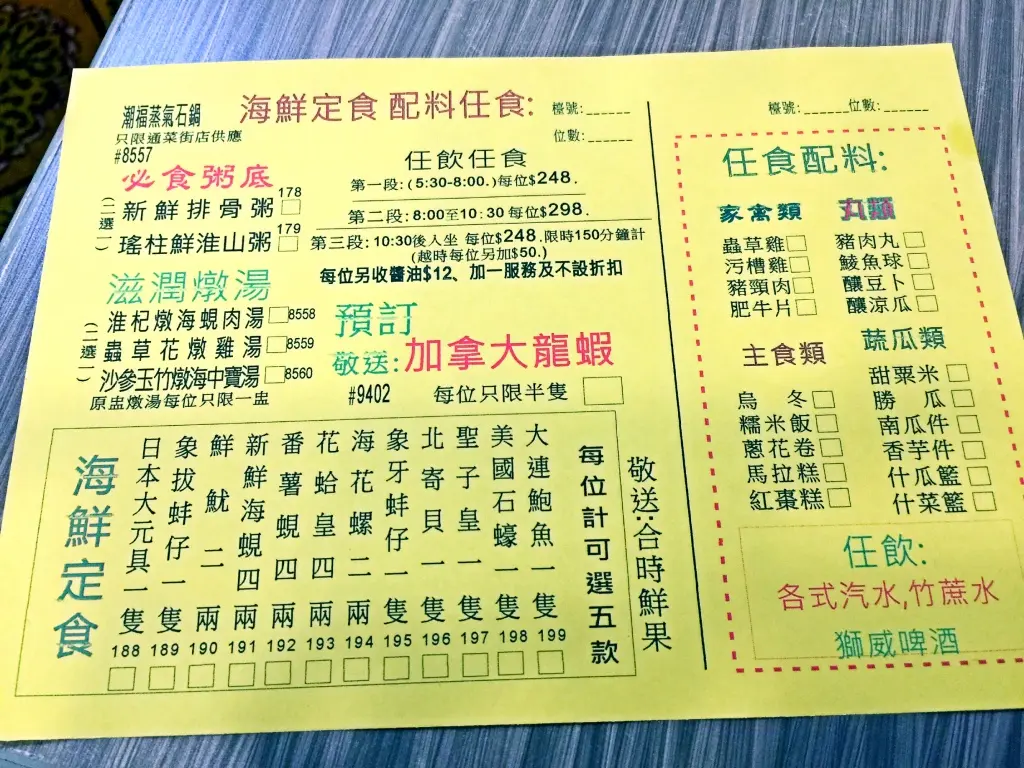 潮福蒸氣石鍋
只限通菜街店供應
#8557
海鮮定食 配料任食:
檯號:______
位數:______
必食粥底
(二選一)
新鮮排骨粥 178
瑤柱鮮淮山粥 179
任飲任食
第一段: (5:30-8:00.)每位$248.
第二段: 8:00至10:30 每位$298.
第三段: 10:30後入坐 每位$248.限時150分鐘計
(越時每位另加$50.)
每位另收醬油$12、加一服務及不設折扣
滋潤燉湯
(二選一)
淮杞燉海蜆肉湯 8558
蟲草花燉雞湯 8559
沙參玉竹燉海中寶湯 8560
原盅燉湯每位只限一盅
預訂
敬送:加拿大龍蝦
#9402 每位只限半隻
海鮮定食
日本大元具一隻 188
象拔蚌仔一隻 189
鮮魷二兩 190
新鮮海蜆四兩 191
番薯蜆四兩 192
花蛤皇四兩 193
海花螺二兩 194
象牙蚌仔一隻 195
北寄貝一隻 196
聖子皇一隻 197
美國石蠔一隻 198
大連鮑魚一隻 199
每位計可選五款
敬送:合時鮮果
檯號:______位數:______
任食配料:
家禽類
蟲草雞
污糟雞
豬頸肉
肥牛片
丸類
豬肉丸
鯪魚球
釀豆卜
釀涼瓜
主食類
烏冬
糯米飯
蔥花卷
馬拉糕
紅棗糕
蔬瓜類
甜粟米
勝瓜
南瓜件
香芋件
什瓜籃
什菜籃
任飲:
各式汽水,竹蔗水
獅威啤酒